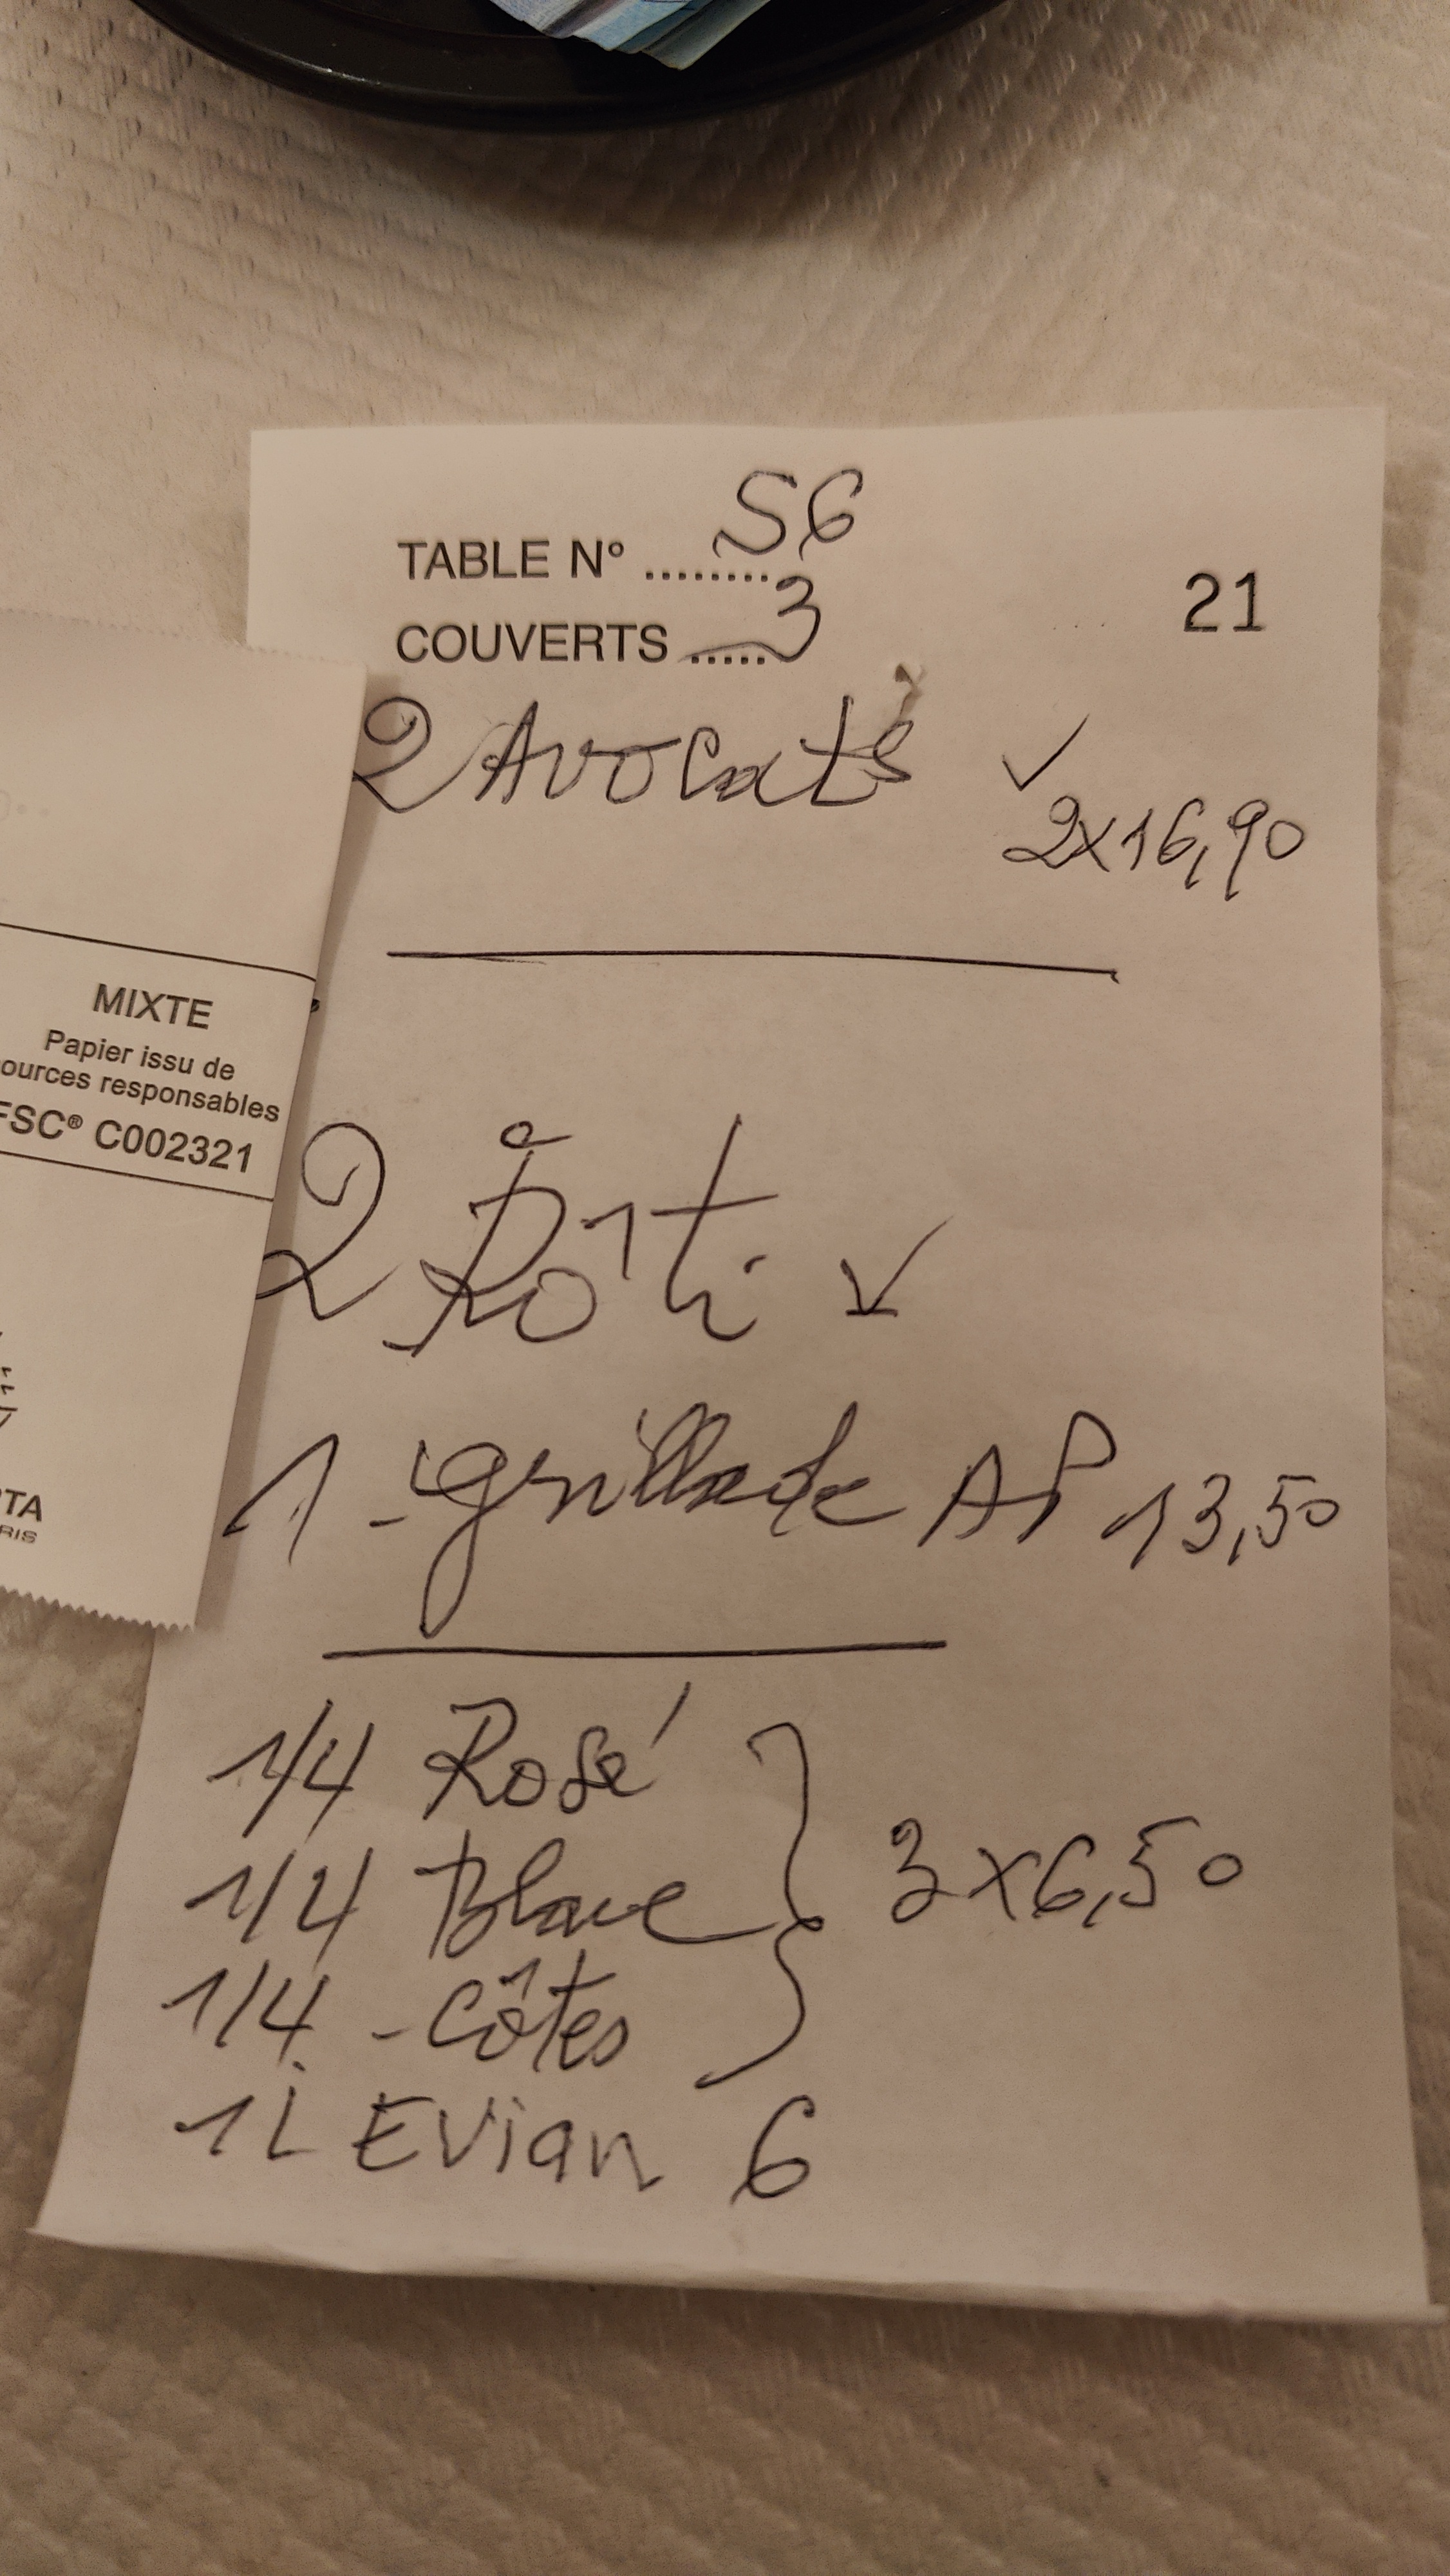 TABLE N° ........ S6
COUVERTS ..... 3
21
2 Avocats ✓
2x16,90
2 Rôti ✓
1 - grillade AP 13,50
1/4 Rosé
1/4 Blanc
1/4 - Côtes
3 x 6,50
1L Evian 6
MIXTE
Papier issu de
ources responsables
FSC® C002321
TA
RIS